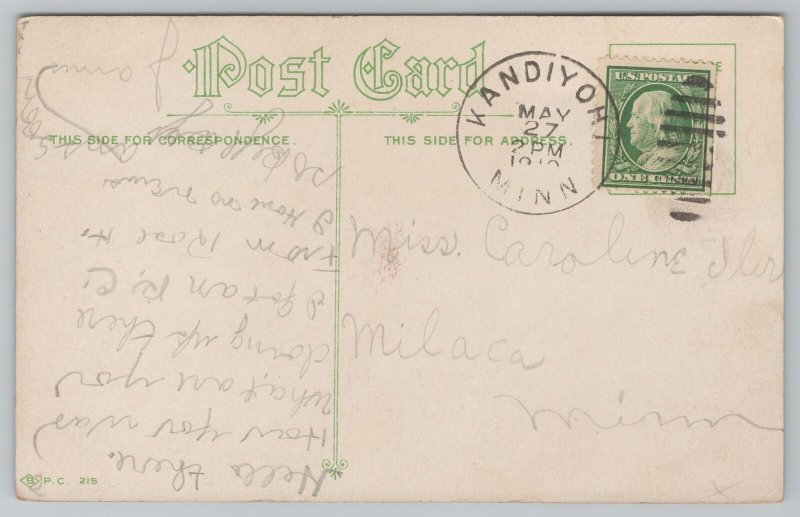 Post Card
THIS SIDE FOR CORRESPONDENCE.
THIS SIDE FOR ADDRESS.
KANDIYOHI
MAY
27
2 PM
1910
MINN
U.S. POSTAGE
ONE CENT
E
Miss. Caroline Iler
Milaca
Minn
Hello there.
How you was
What are you
doing up there
I got an P. C.
From Rose H.
I Have no news
so
ans soon
B P.C. 215
x